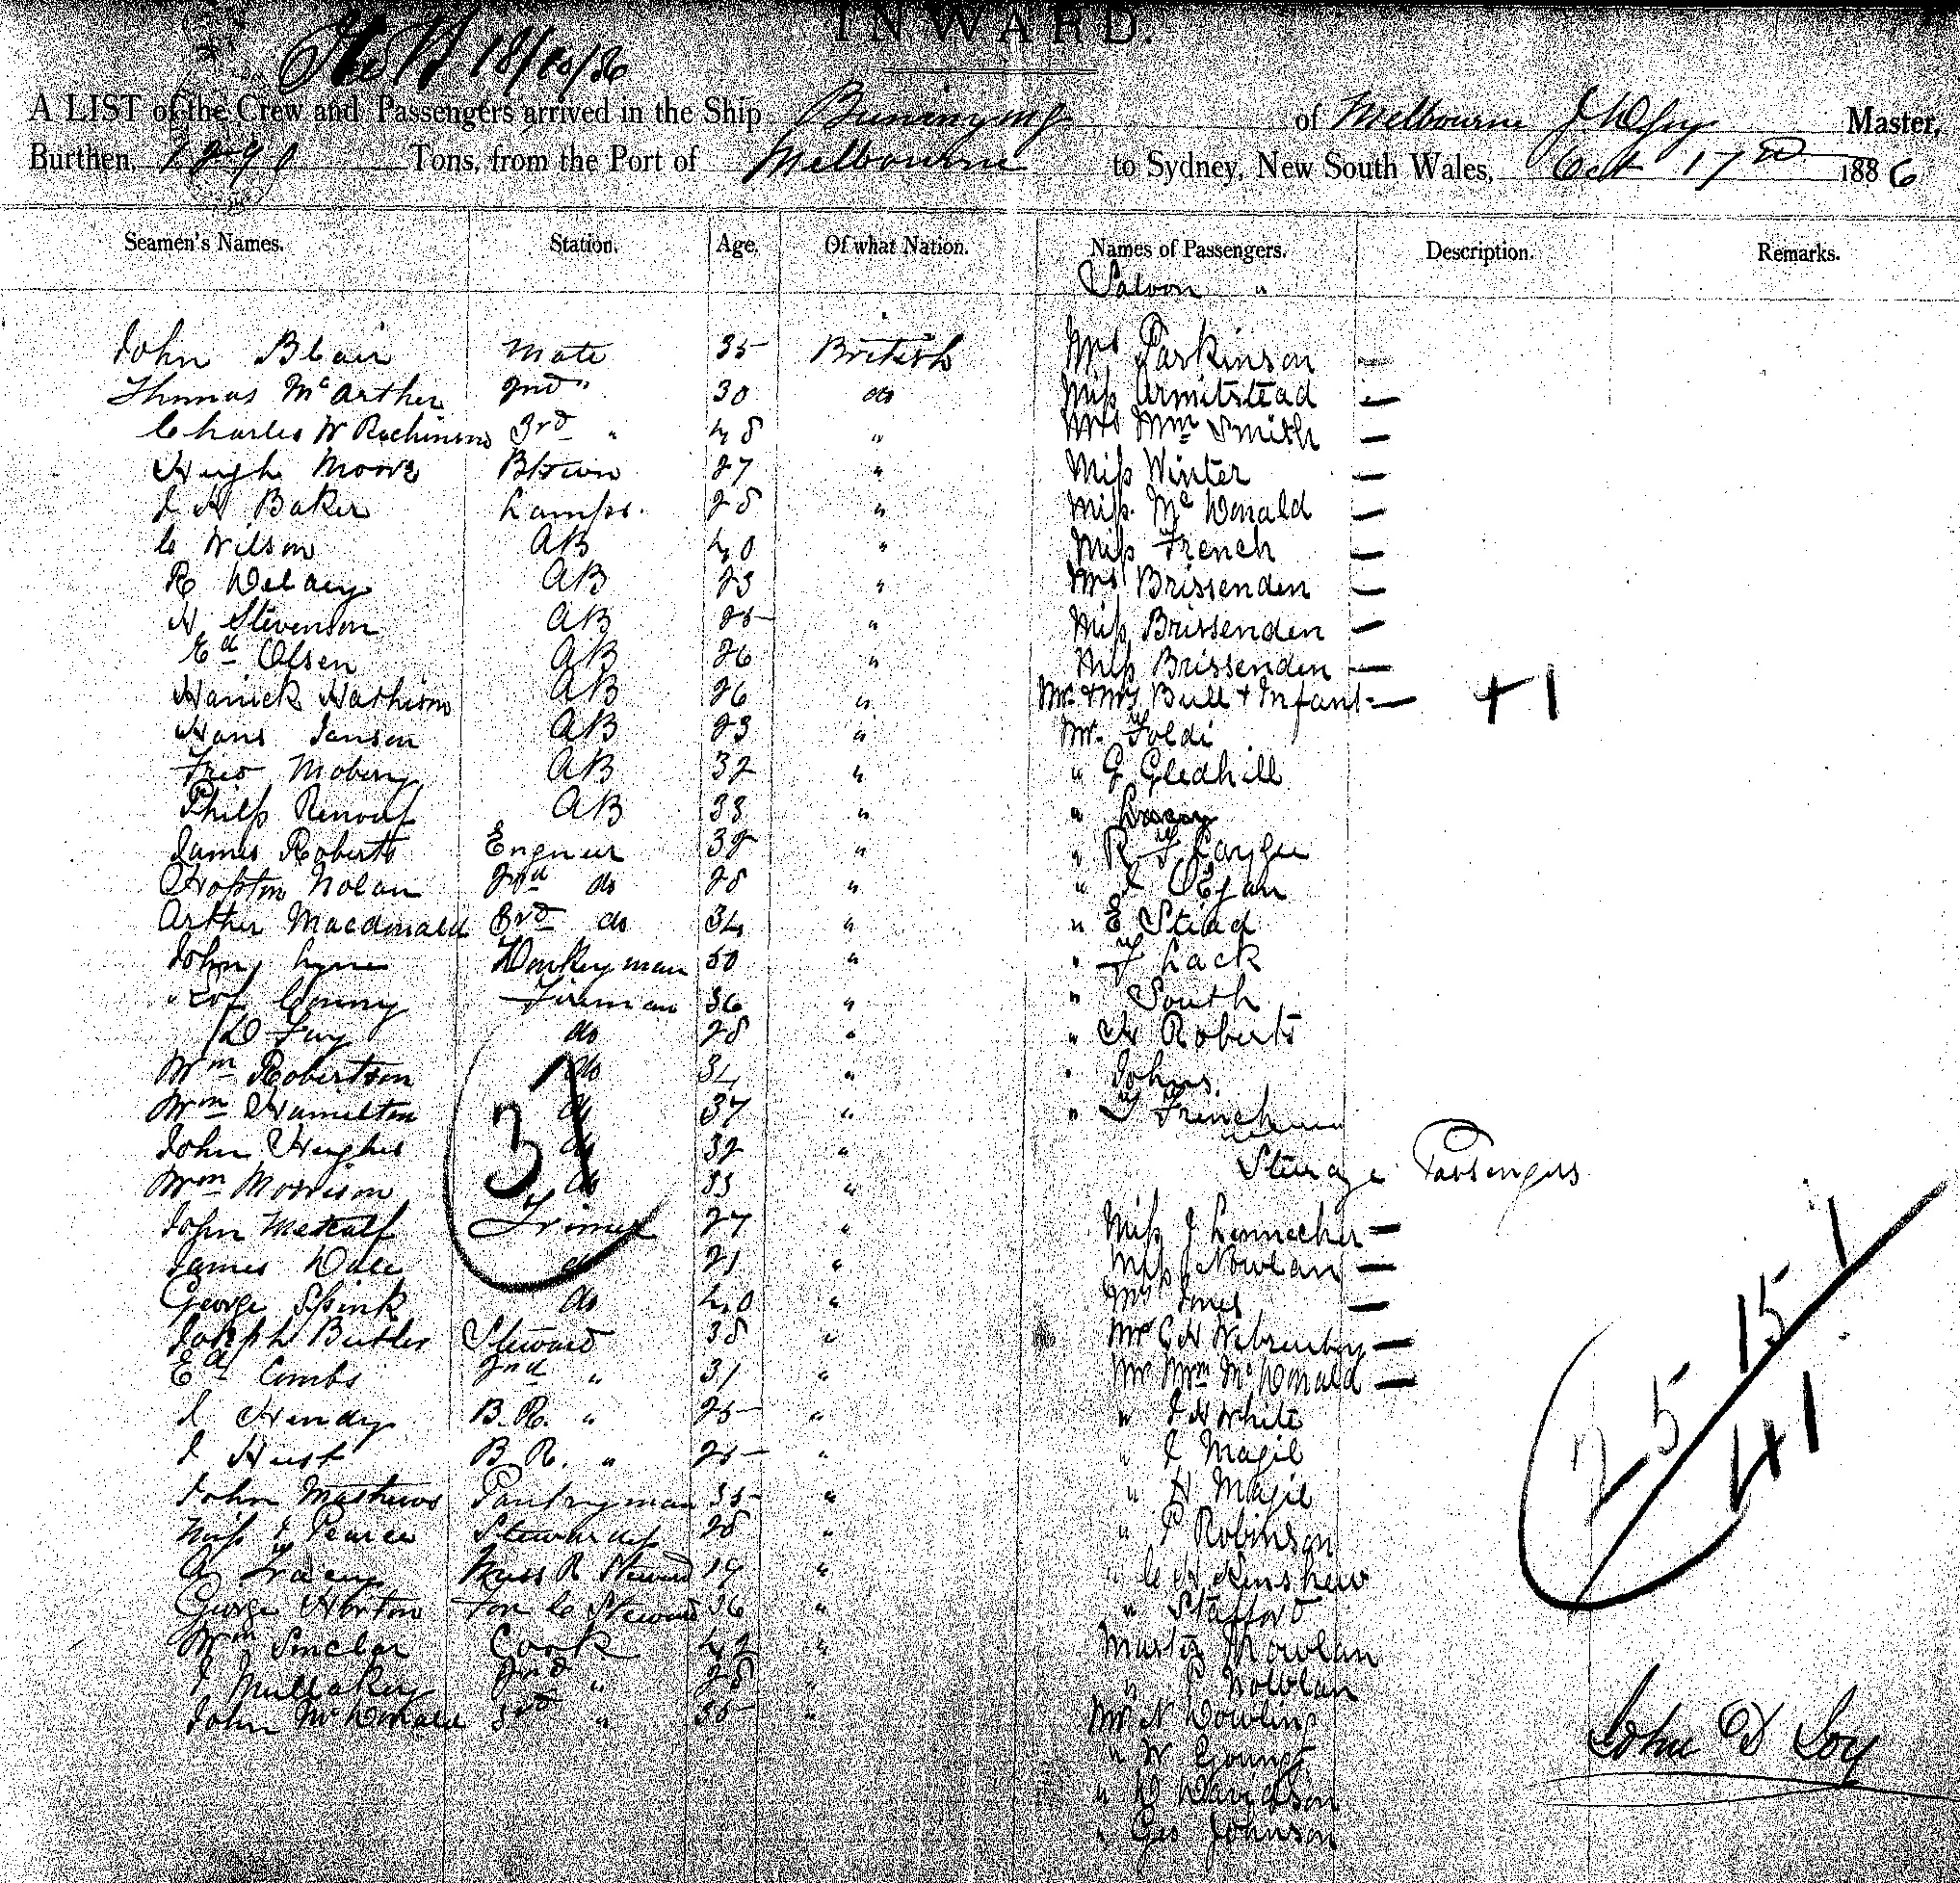 INWARD.
18/10/86
A LIST of the Crew and Passengers arrived in the Ship Buninyong of Melbourne J D Loy Master,
Burthen, Tons, from the Port of Melbourne to Sydney, New South Wales, Oct 17th 1886
Seamen's Names. Station. Age. Of what Nation. Names of Passengers. Description. Remarks.
Saloon "
John Blair Mate 35 British Mrs Parkinson —
Thomas McArther 2nd " 30 do Miss Armitstead —
Charles W 3rd " 48 " Mrs Wm Smith —
Hugh Moore Btswn 27 " Miss Winter —
J H Baker Lamps. 28 " Miss McDonald —
C Wilson AB 40 " Miss French —
R Delany AB 23 " Mrs Brissenden —
H Stevenson AB 25 " Miss Brissenden —
Ed Olsen AB 26 " Miss Brissenden —
Hathison AB 26 " Mr & Mrs Bull & Infant — +1
Hans Janson AB 23 " Mr. Foldi
Fred Moberg AB 32 " " G Gledhill
Philip Renouf AB 33 " "
James Roberts Engneer 32 " " R F
Nolan 2nd do 28 " "
Arther Macdonald 3rd do 34 " " E Stead
John Lyne Donkeyman 50 " " F Lack
Conny Fireman 36 " " South
D Fuy do 28 " " H Roberts
Wm Robertson do 34 " " Johns
Wm Hamilton do 37 " " F French
John Hughes do 32 "
31
Steerage Passengers
Wm Morrison do 33 "
John Metcalf Trimer 27 " Miss J —
James Dale do 21 " Miss Nowlan —
George Spink do 40 " Mrs Jones —
Joseph Butler Steward 38 " Mr C H —
Ed Combs 2nd " 31 " Mr Wm McDonald —
J Hendy B.R. " 25 " " J H White
J Hust B.R. " 25 " " J Magil
John Mathews Pantryman 35 " " H Magil
Miss J Pearce Stewardess 28 " " P Robinson
A Tracey Mess R Steward 19 " " C H Renshew
George Horton For C Steward 36 " " Stafford
Wm Sinclar Cook 42 " Master Nowlan
J Mullakey 2nd " 28 " " P Nowlan
John McDonald 3rd " 35 " Mr N Dowling
" W Young
" D Davidson
" Geo Johnson
25 15 1
41
John D Loy